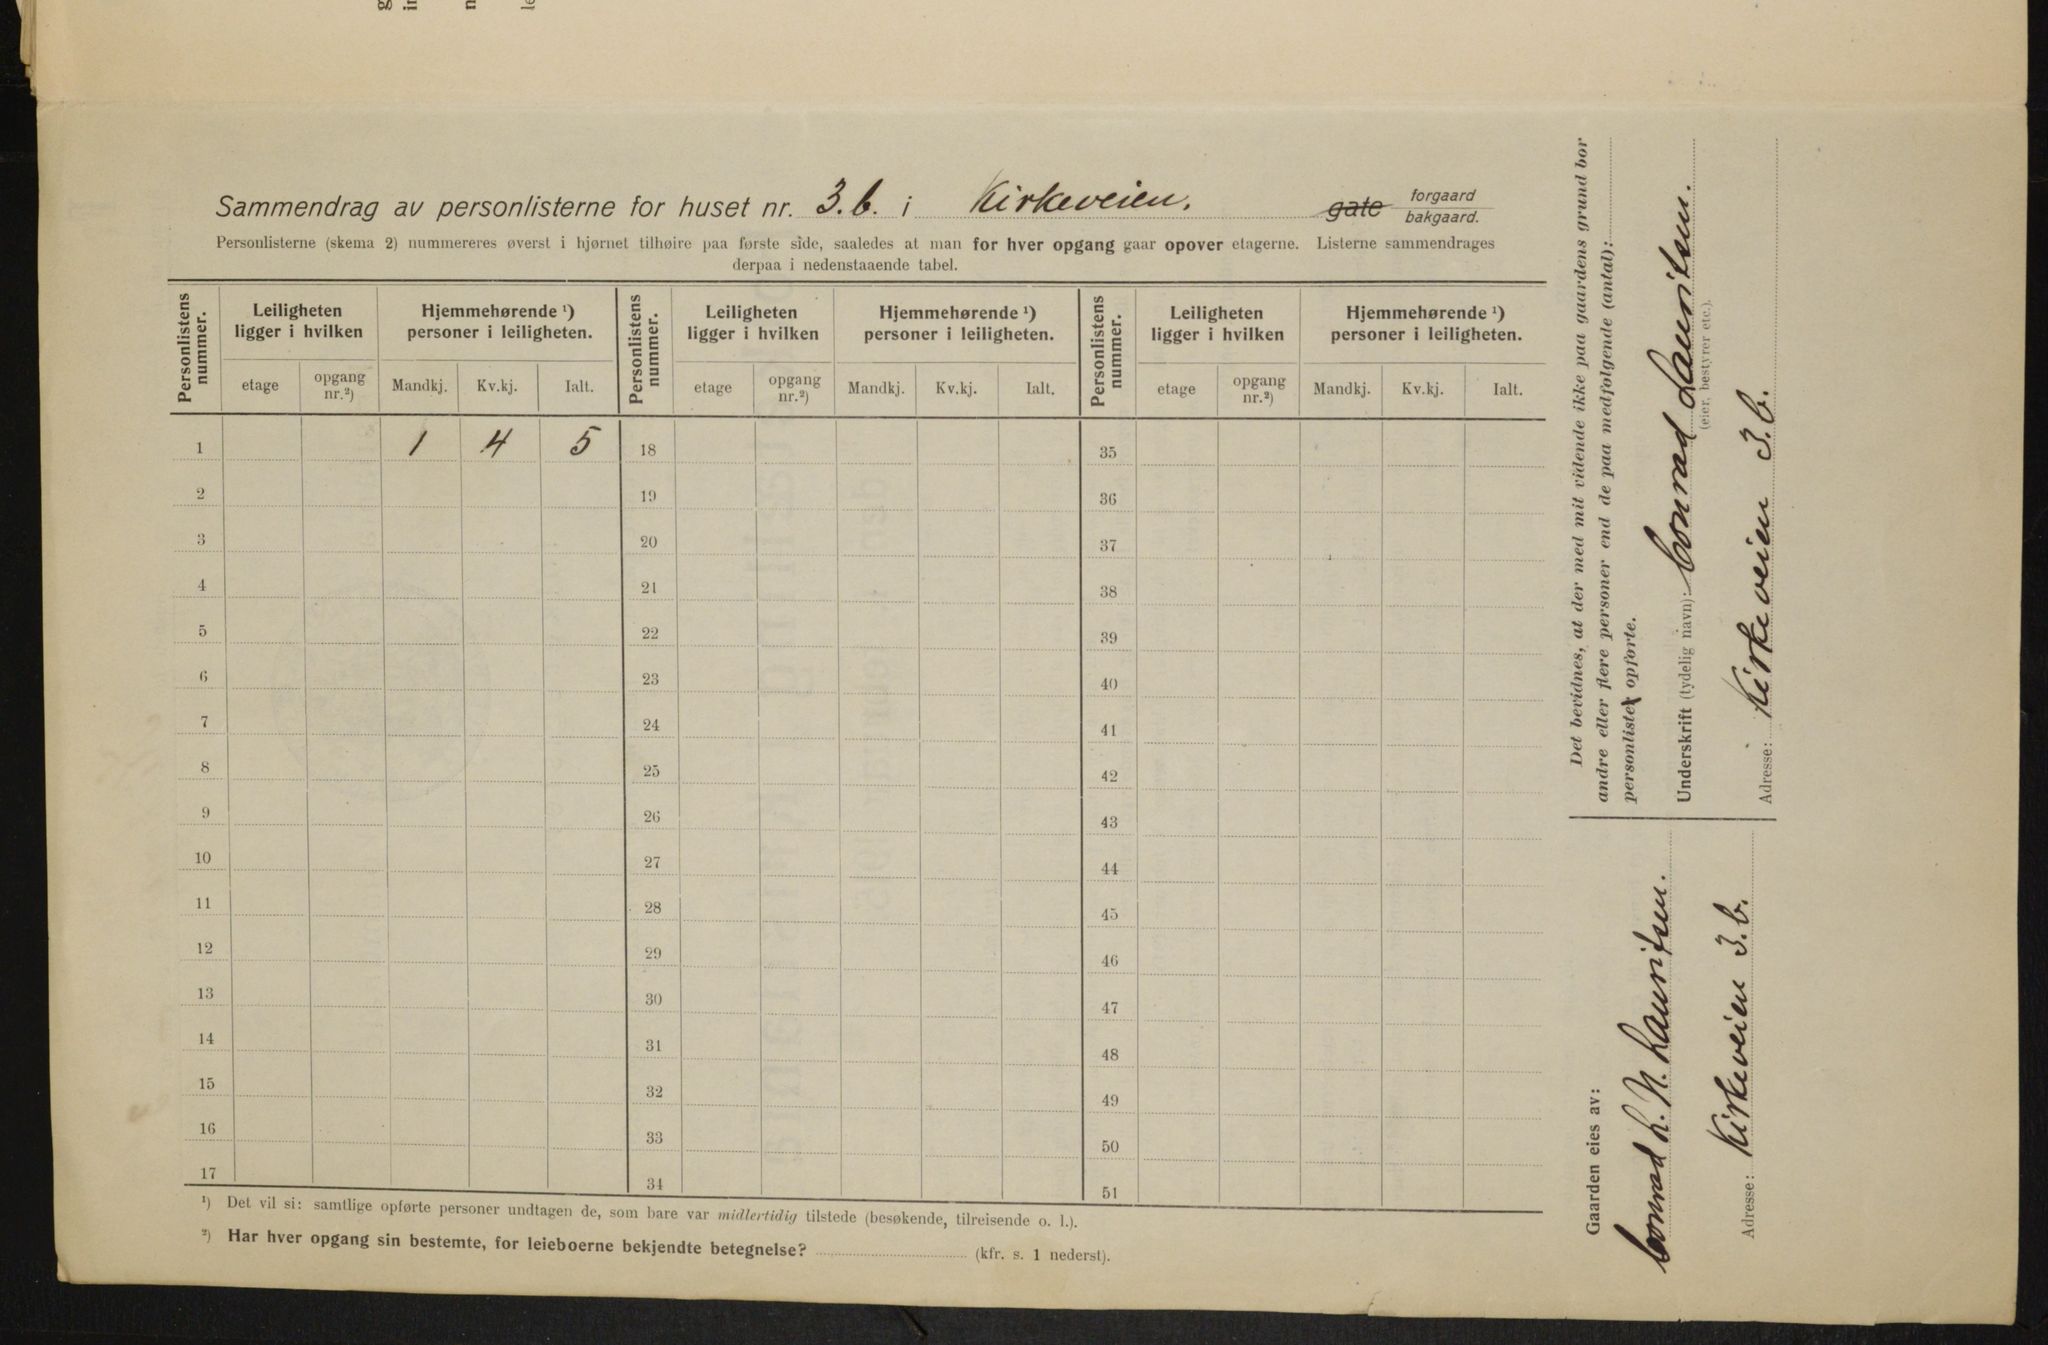 Sammendrag av personlisterne for huset nr. 3.b. i Kirkeveien. gate forgaard bakgaard.
Personlisterne (skema 2) nummereres øverst i hjørnet tilhøire paa første side, saaledes at man for hver opgang gaar opover etagerne. Listerne sammendrages
derpaa i nedenstaaende tabel.
Personlistens nummer. Leiligheten ligger i hvilken Hjemmehørende ¹) personer i leiligheten. Personlistens nummer. Leiligheten ligger i hvilken Hjemmehørende ¹) personer i leiligheten. Personlistens nummer. Leiligheten ligger i hvilken Hjemmehørende ¹) personer i leiligheten.
etage opgang nr.²) Mandkj. Kv.kj. Ialt. etage opgang nr.²) Mandkj. Kv.kj. Ialt. etage opgang nr.²) Mandkj. Kv.kj. Ialt.
1 1 4 5 18 35
2 19 36
3 20 37
4 21 38
5 22 39
6 23 40
7 24 41
8 25 42
9 26 43
10 27 44
11 28 45
12 29 46
13 30 47
14 31 48
15 32 49
16 33 50
17 34 51
¹) Det vil si: samtlige opførte personer undtagen de, som bare var midlertidig tilstede (besøkende, tilreisende o. l.).
²) Har hver opgang sin bestemte, for leieboerne bekjendte betegnelse? (kfr. s. 1 nederst).
Det bevidnes, at der med mit vidende ikke paa gaardens grund bor
andre eller flere personer end de paa medfølgende (antal):
personlister opførte.
Underskrift (tydelig navn): Conrad Lauritsen.
(eier, bestyrer etc.).
Adresse: Kirkeveien 3.b.
Gaarden eies av:
Conrad L. N. Lauritsen.
Adresse: Kirkeveien 3.b.